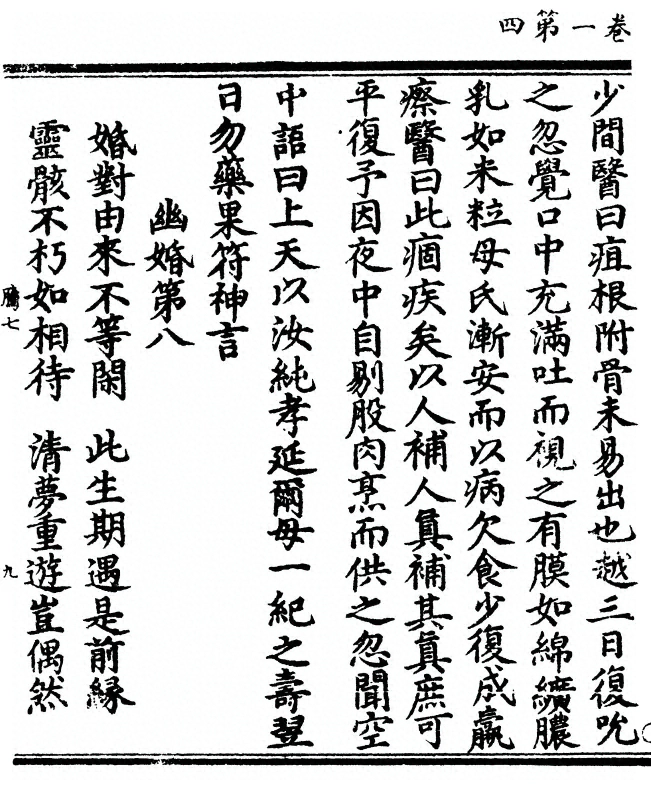 卷一第四
少間醫曰疽根附骨未易出也越三日復吮
之忽覺口中充滿吐而視之有膜如綿纊膿
乳如米粒母氏漸安而以病欠食少復成羸
瘵醫曰此痼疾矣以人補人真補其真庶可
平復予因夜中自剔股肉烹而供之忽聞空
中語曰上天以汝純孝延爾母一紀之壽翌
日勿藥果符神言
幽婚第八
婚對由來不等閑 此生期遇是前緣
靈骸不朽如相待 清夢重遊豈偶然
七
九